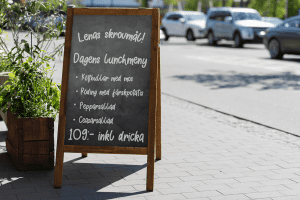 Lenas skrovmål!
Dagens lunchmeny
• Köttbullar med mos
• Röding med färskpotatis
• Pepparsallad
• Caesarsallad
109:- inkl dricka